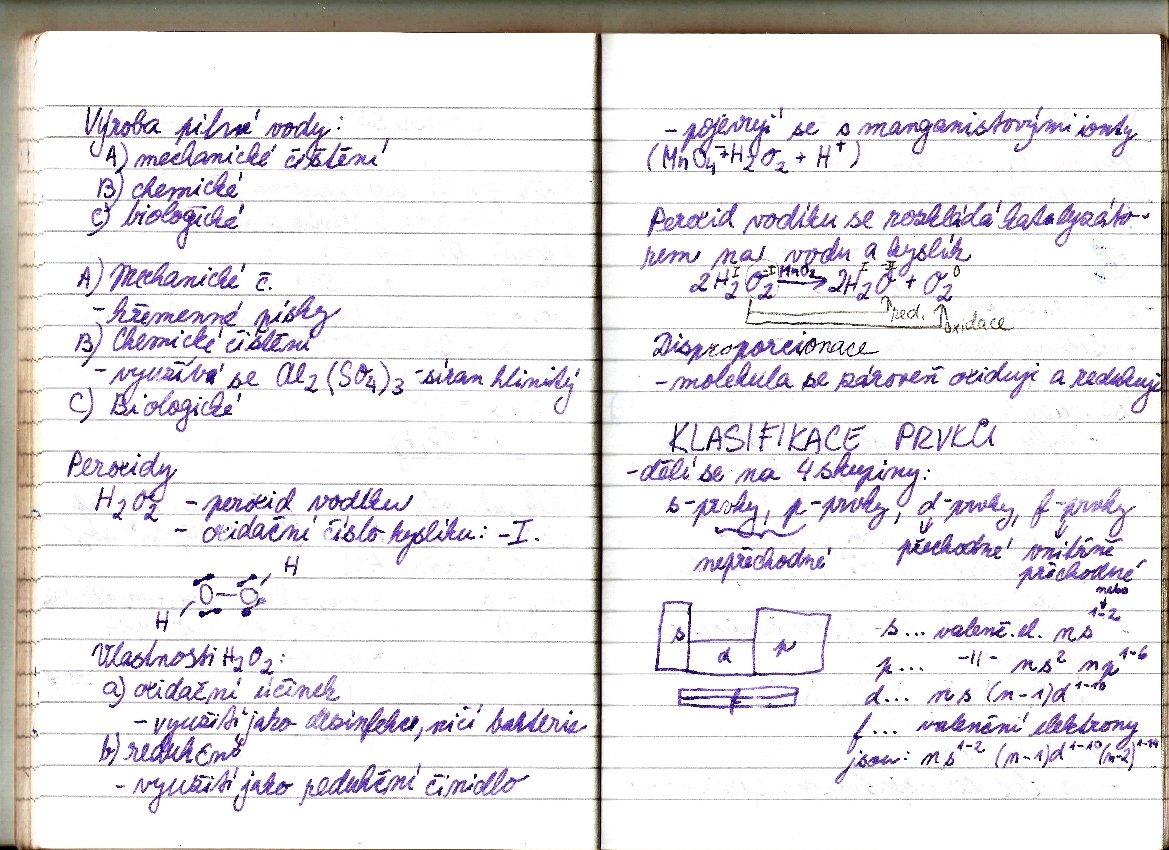 Výroba pitné vody:
A) mechanické čištění
B) chemické
C) biologické
A) Mechanické č.
- křemenné písky
B) Chemické čištění
- využívá se Al₂(SO₄)₃ - síran hlinitý
C) Biologické
Peroxidy
H₂O₂ - peroxid vodíku
- oxidační číslo kyslíku: -I.
H
O-O
H
Vlastnosti H₂O₂:
a) oxidační účinek
- využití jako desinfekce, ničí bakterie
b) redukční
- využití jako redukční činidlo
- projevují se s manganistovými ionty
(MnO₄⁻ + H₂O₂ + H⁺)
Peroxid vodíku se rozkládá katalyzáto-
rem na vodu a kyslík
2H₂ᴵO₂⁻ᴵ MnO₂→ 2H₂ᴵO⁻ᴵᴵ + O₂⁰
red.
oxidace
Disproporcionace
- molekula se zároveň oxiduji a redukuji
KLASIFIKACE PRVKŮ
- dělí se na 4 skupiny:
s-prvky, p-prvky, d-prvky, f-prvky
nepřechodné přechodné vnitřně
přechodné
nebo
s d p
f
s... valenč. el. ns¹⁻²
p... -||- ns² np¹⁻⁶
d... ns (n-1)d¹⁻¹⁰
f... valenční elektrony
jsou: ns¹⁻² (n-1)d¹⁻¹⁰ (n-2)¹⁻¹⁴